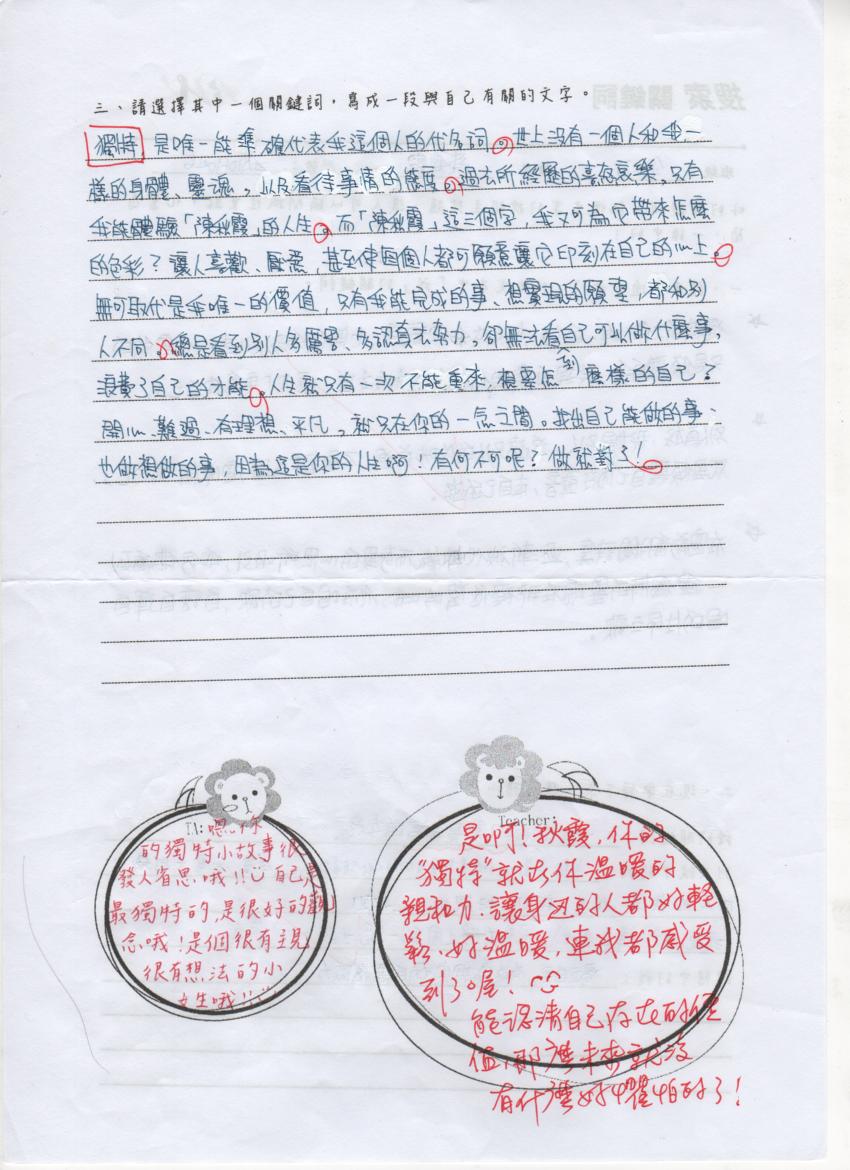 三、請選擇其中一個關鍵詞，寫成一段與自己有關的文字。
獨特，是唯一能準確代表我這個人的代名詞。世上沒有一個人和我一
樣的身體、靈魂，以及看待事情的態度。過去所經歷的喜怒哀樂，只有
我能體驗「陳秋霞」的人生。而「陳秋霞」這三個字，我又可為它帶來怎麼
的色彩？讓人喜歡、厭惡，甚至使每個人都可願意讓它印刻在自己的心上。
無可取代是我唯一的價值，只有我能完成的事、想實現的願望，都和別
人不同。總是看到別人多厲害、多認真去努力，卻無法看自己可以做什麼事，
浪費了自己的才能。人生就只有一次不能重來，想要怎到麼樣的自己？
開心、難過、有理想、平凡，就只在你的一念之間。找出自己能做的事、
也做想做的事，因為這是你的人生啊！有何不可呢？做就對了！
TA:嗯 你
的獨特小故事很
發人省思哦!!自己是
最獨特的,是很好的觀
念哦!是個很有主見
很有想法的小
女生哦!!
Teacher:
是啊!秋霞,你的
"獨特"就在你溫暖的
親和力.讓身邊的人都好輕
鬆、好溫暖,連我都感受
到了喔!
能認清自己存在的價
值,那麼未來就沒
有什麼好懼怕的了!